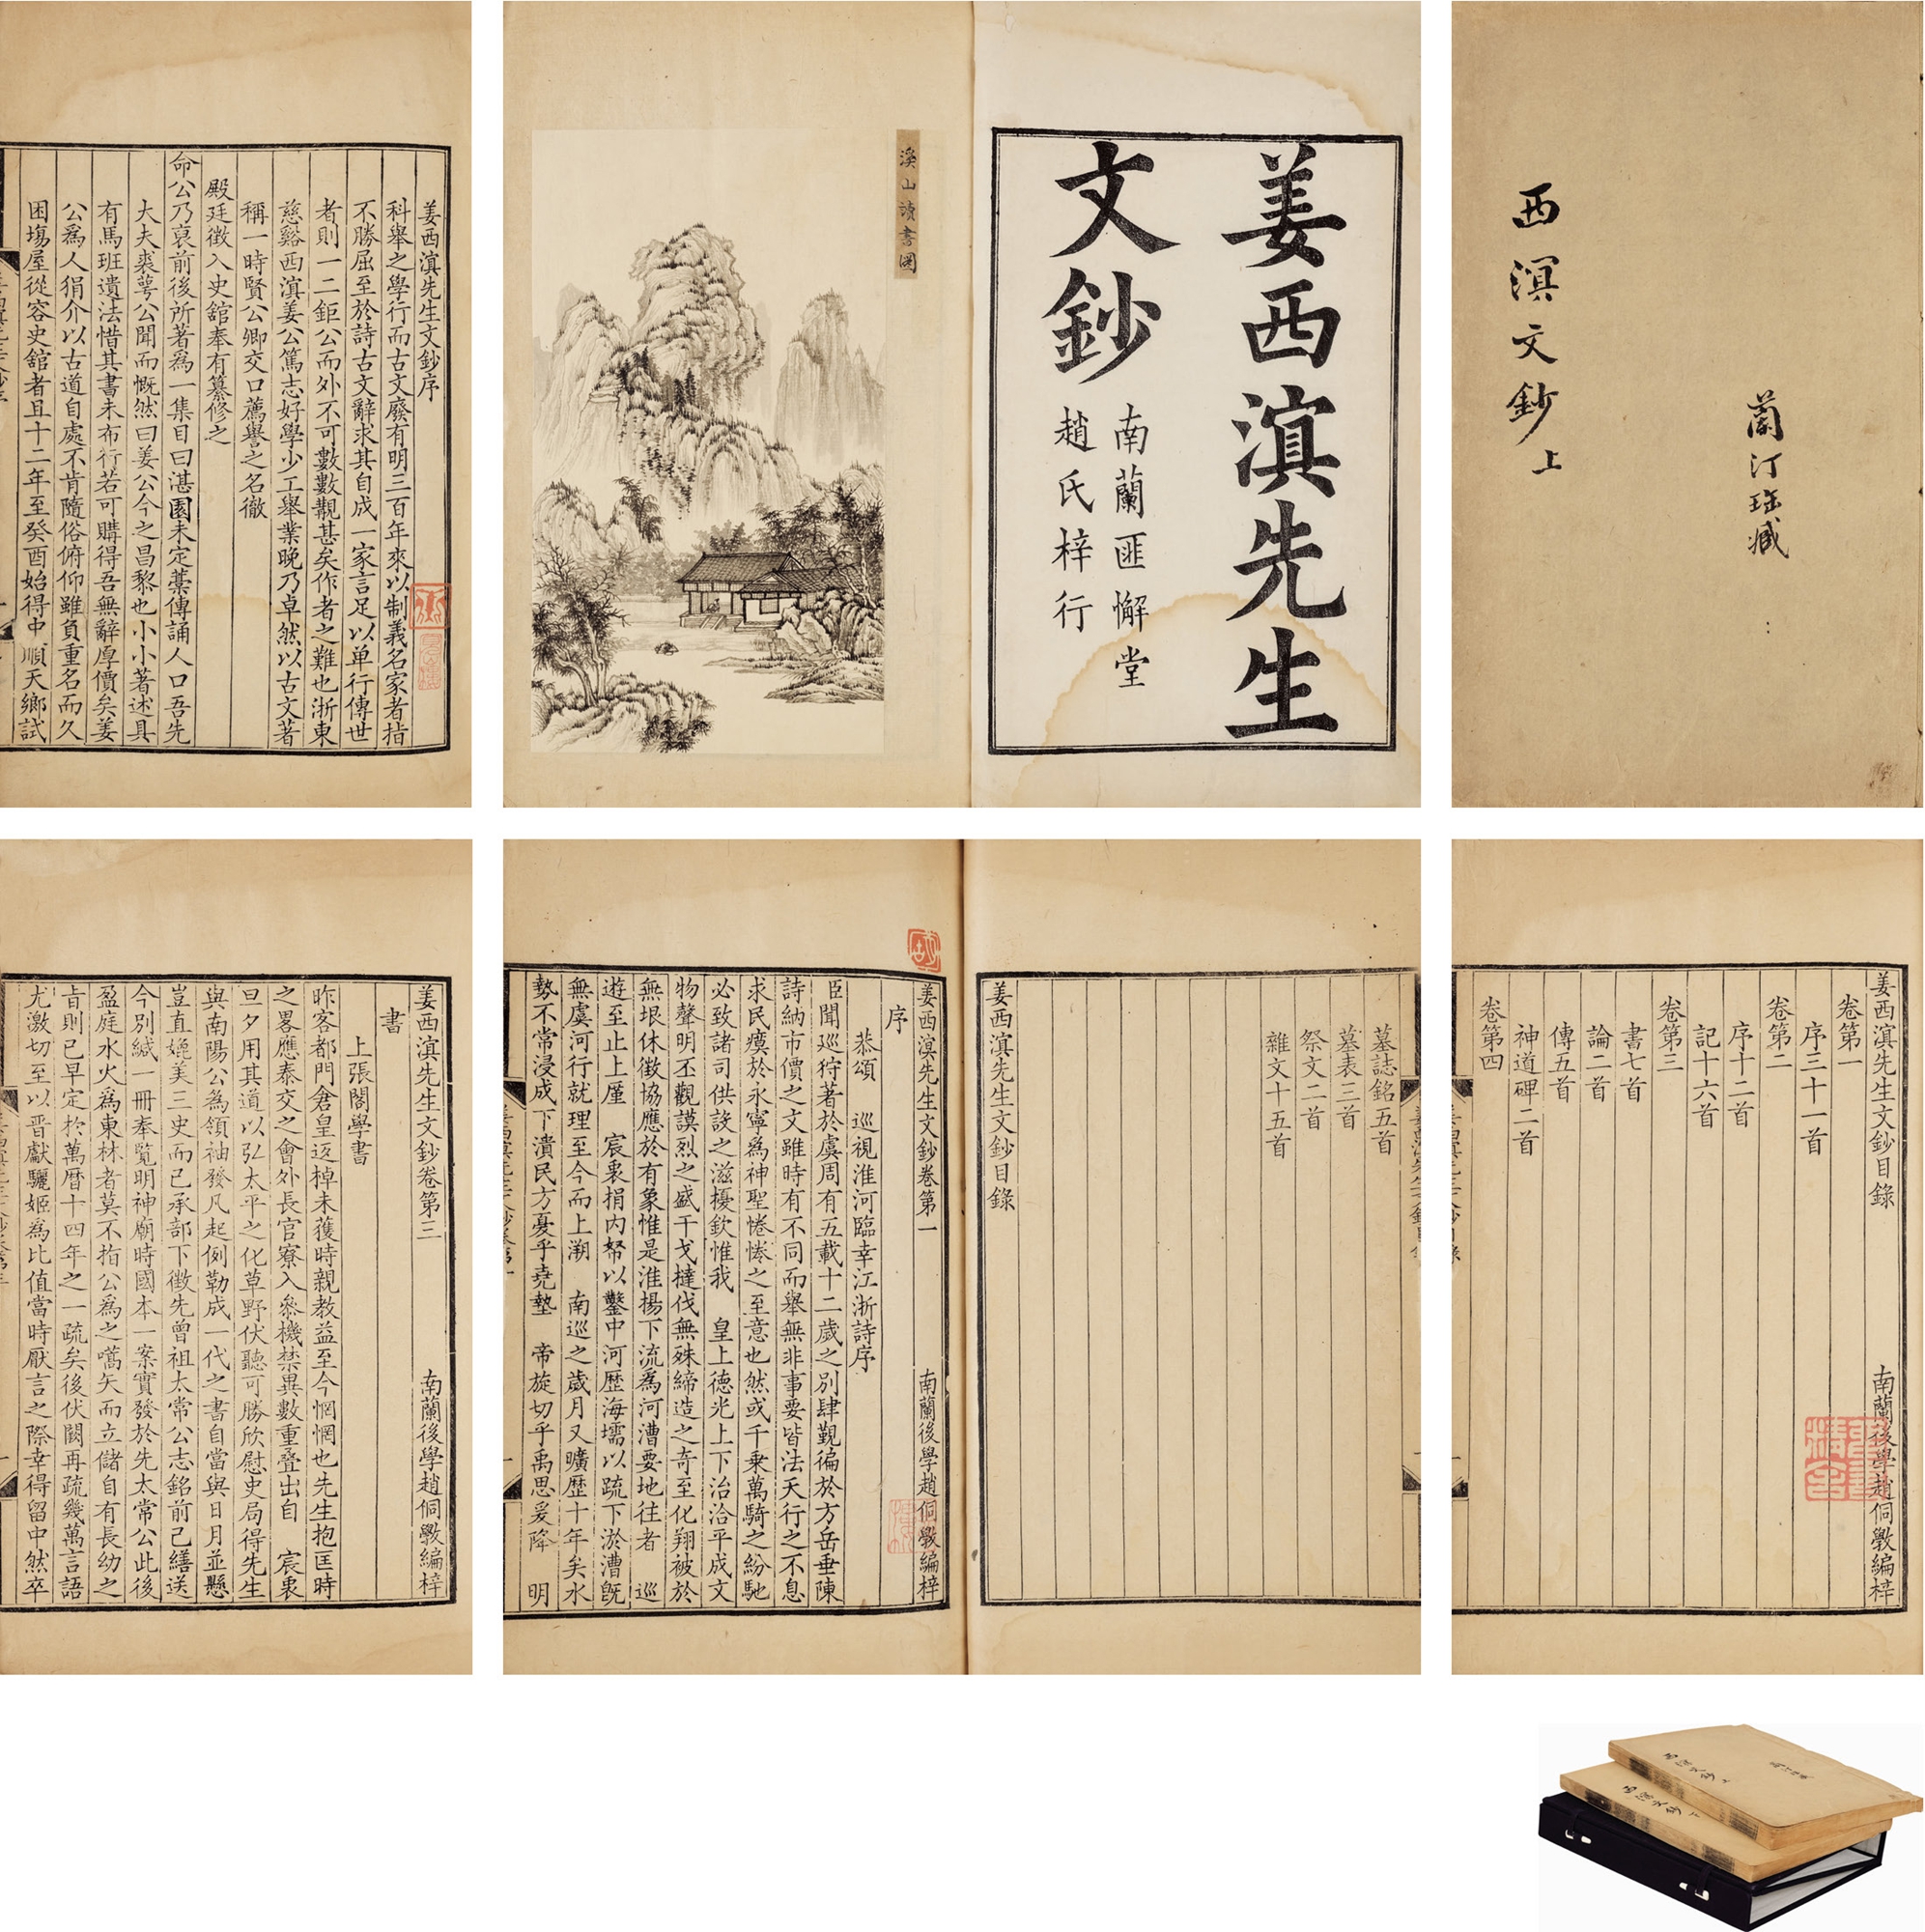 蘭汀珤藏
西溟文鈔上
姜西溟先生
文鈔
南蘭匪懈堂
趙氏梓行
溪山讀書圖
姜西溟先生文鈔序
科舉之學行而古文廢有明三百年來以制義名家者指
不勝屈至於詩古文辭求其自成一家言足以单行傳世
者則一二鉅公而外不可數數觀甚矣作者之難也浙東
慈谿西溟姜公篤志好學少工舉業晚乃卓然以古文著
稱一時賢公卿交口薦譽之名徹
殿廷徵入史舘奉有纂修之
命公乃裒前後所著爲一集目曰湛園未定藁傳誦人口吾先
大夫裘萼公聞而慨然曰姜公今之昌黎也小小著述具
有馬班遺法惜其書未布行若可購得吾無辭厚價矣姜
公爲人狷介以古道自處不肯隨俗俯仰雖負重名而久
困塲屋從容史舘者且十二年至癸酉始得中順天鄉試
姜西溟先生文鈔目錄
南蘭後學趙侗斅編梓
卷第一
序三十一首
卷第二
序十二首
記十六首
卷第三
書七首
論二首
傳五首
神道碑二首
卷第四
墓誌銘五首
墓表三首
祭文二首
雜文十五首
姜西溟先生文鈔目錄
姜西溟先生文鈔卷第一
南蘭後學趙侗斅編梓
序
恭頌 巡視淮河臨幸江浙詩序
臣聞巡狩著於虞周有五載十二歲之別肆覲徧於方岳垂陳
詩納市價之文雖時有不同而舉無非事要皆法天行之不息
求民瘼於永寧爲神聖惓惓之至意也然或千乗萬騎之紛馳
必致諸司供設之滋擾欽惟我 皇上德光上下治洽平成文
物聲明丕觀謨烈之盛干戈撻伐無殊締造之奇至化翔被於
無垠休徵協應於有象惟是淮揚下流爲河漕要地往者 巡
遊至止上厪 宸衷捐内帑以鑿中河歴海壖以疏下淤漕旣
無虞河行就理至今而上溯 南巡之歲月又曠歴十年矣水
勢不常浸成下潰民方憂乎堯墊 帝旋切乎禹思爰降 明
姜西溟先生文鈔卷第三
南蘭後學趙侗斅編梓
書
上張閣學書
昨客都門倉皇返棹未獲時親教益至今惘惘也先生抱匡時
之畧應泰交之會外長官寮入叅機禁異數重疊出自 宸衷
旦夕用其道以弘太平之化草野伏聽可勝欣慰史局得先生
與南陽公為領袖發凡起例勒成一代之書自當與日月並懸
豈直媲美三史而已承部下徵先曾祖太常公志銘前已繕送
今別緘一冊奉覽明神廟時國本一案實發於先太常公此後
盈庭水火爲東林者莫不指公爲之嚆矢而立儲自有長幼之
㫖則已早定於萬曆十四年之一疏矣後伏闕再疏幾萬言語
尤激切至以晋獻驪姬為比值當時厭言之際幸得留中然卒